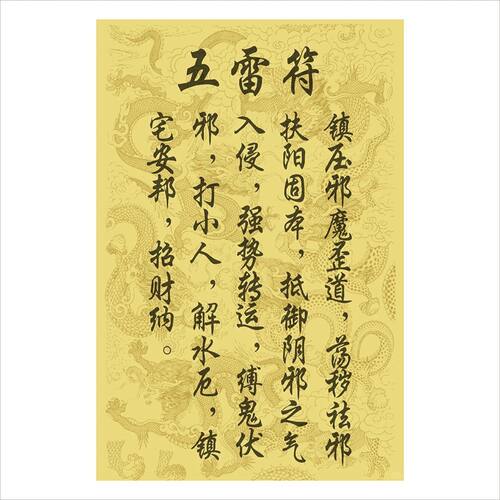 五雷符
镇压邪魔歪道，荡秽祛邪
扶阳固本，抵御阴邪之气
入侵，强势转运，缚鬼伏
邪，打小人，解水厄，镇
宅安邦，招财纳。